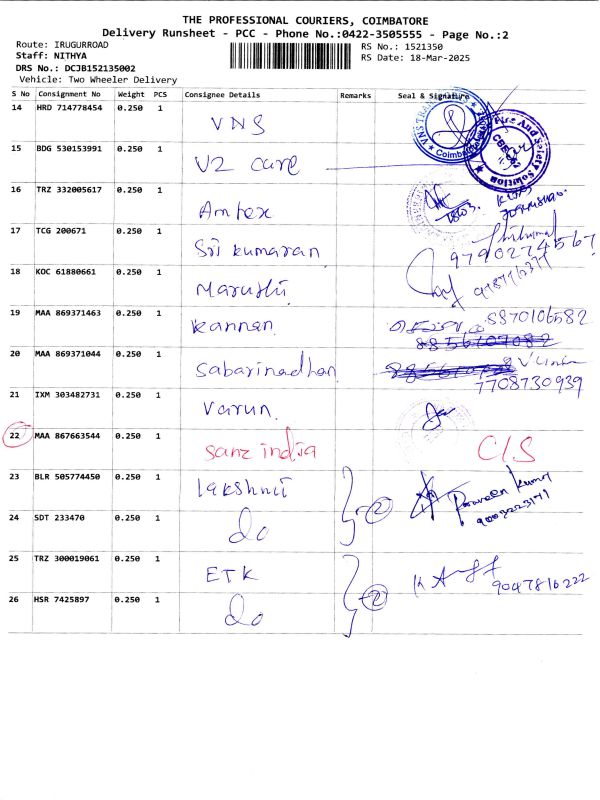 THE PROFESSIONAL COURIERS, COIMBATORE
Delivery Runsheet - PCC - Phone No.:0422-3505555 - Page No.:2
Route: IRUGURROAD
Staff: NITHYA
DRS No.: DCJB152135002
Vehicle: Two Wheeler Delivery
RS No.: 1521350
RS Date: 18-Mar-2025
S No Consignment No Weight PCS Consignee Details Remarks Seal & Signature
14 HRD 714778454 0.250 1 VNS
15 BDG 530153991 0.250 1 V2 care
16 TRZ 332005617 0.250 1 Amtex
17 TCG 200671 0.250 1 Sri kumaran 9790274567
18 KOC 61880661 0.250 1 Maruthi
19 MAA 869371463 0.250 1 kannan 8870106582
20 MAA 869371044 0.250 1 Sabarinadhan 7708730939
21 IXM 303482731 0.250 1 Varun
22 MAA 867663544 0.250 1 sanz india C/S
23 BLR 505774450 0.250 1 lakshmi Praveen kumar
24 SDT 233470 0.250 1 do 2
25 TRZ 300019061 0.250 1 ETK 9047816222
26 HSR 7425897 0.250 1 do 2